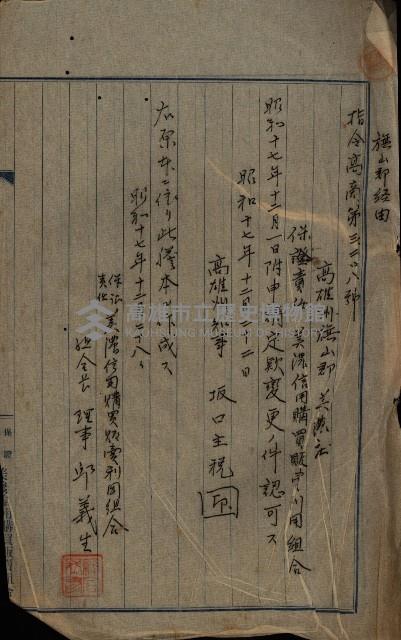 旗山郡経由
指令高商第三二八號
高雄州旗山郡美濃庄
保證責任美濃信用購買販賣利用組合
昭和十七年十二月一日附申請定款變更ノ件認可ス
昭和十七年十二月二十二日
高雄州知事 坂口主税 印
右原本ニ依リ此謄本ヲ作成ス
昭和十七年十二月二十八日
保証責任美濃信用購買販賣利用組合
組合長理事 邱義生
高雄市立歷史博物館